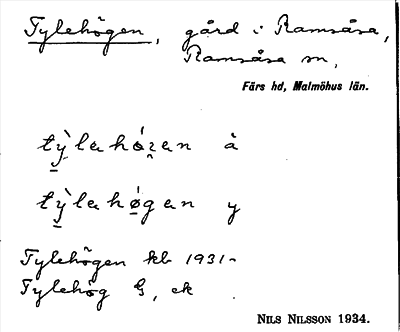 Tylehögen, gård i Ramsåsa,
Ramsåsa sn,
Färs hd, Malmöhus län.
tỳ̠lehóʒ̠en å
tỳ̠lehǿ̠gen y
Tylehögen kb 1931-
Tylehög G, ek
NILS NILSSON 1934.